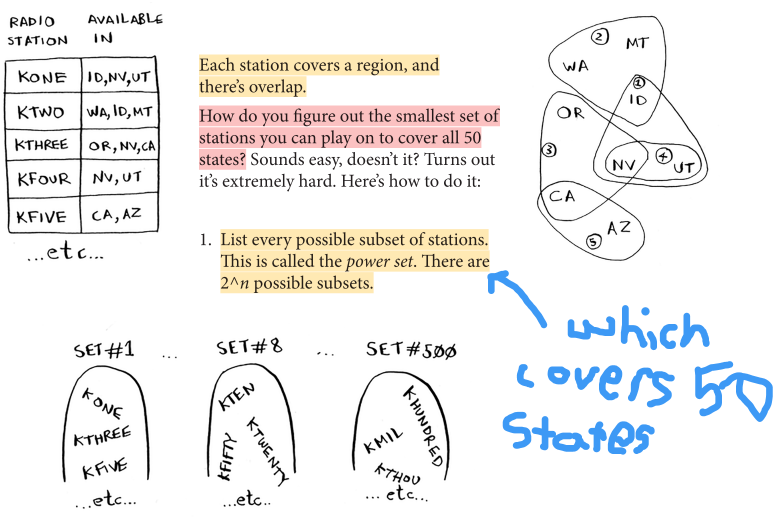 RADIO STATION
AVAILABLE IN
KONE ID,NV,UT
KTWO WA,ID,MT
KTHREE OR,NV,CA
KFOUR NV,UT
KFIVE CA,AZ
...etc...
Each station covers a region, and
there's overlap.
How do you figure out the smallest set of
stations you can play on to cover all 50
states? Sounds easy, doesn't it? Turns out
it's extremely hard. Here's how to do it:
1. List every possible subset of stations.
This is called the power set. There are
2^n possible subsets.
2 MT
WA
1
ID
OR
3
NV 4 UT
CA
AZ
5
which
covers 50
states
SET#1 ... SET#8 ... SET#500
KONE
KTHREE
KFIVE
...etc...
KTEN
KFIFTY
KTWENTY
...etc...
KHUNDRED
KMIL
KTHOU
...etc...